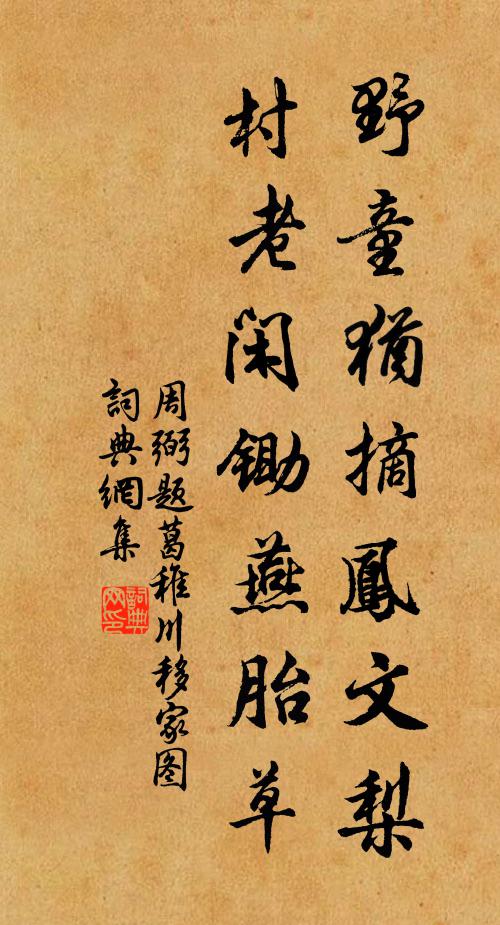 野童猶摘鳳文梨
村老閑鋤燕胎草
周弼题葛稚川移家图
詞典網集
詞典网印